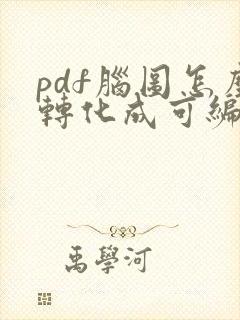 pdf腦圖怎麼
轉化成可編
禹學河